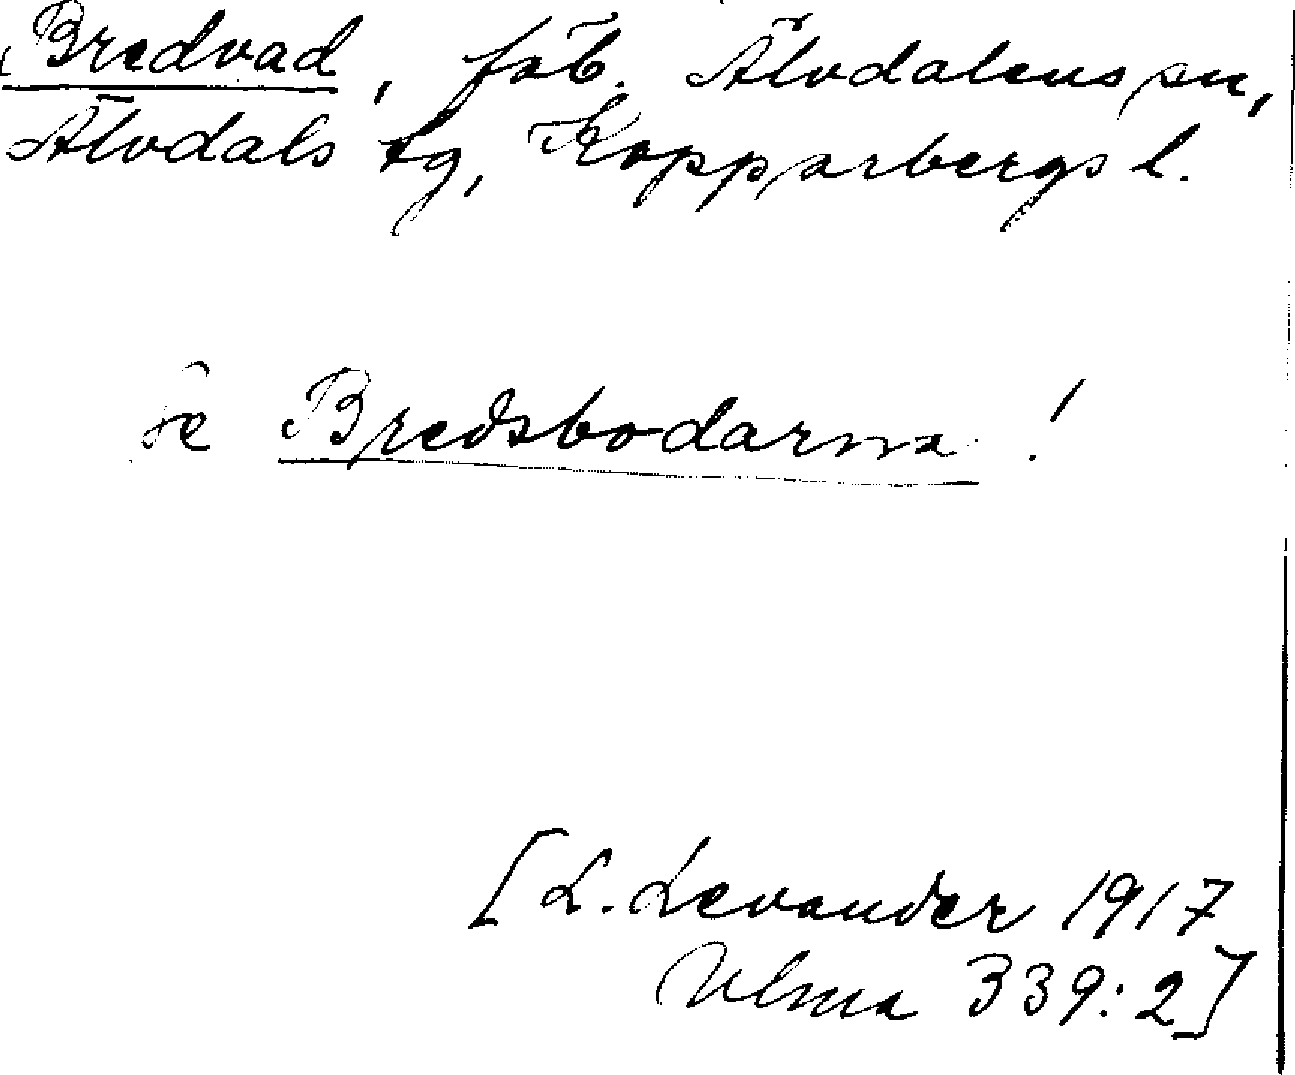 Bredvad, fäb. Älvdalens sn,
Älvdals tg, Kopparbergs l.
se Bredsbodarna!
[L. Levander 1917
Ulma 339:2]